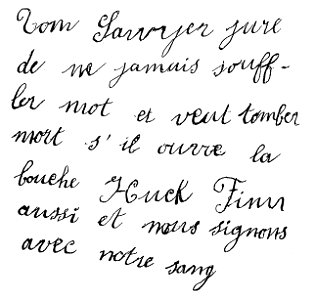 Tom Sawyer jure
de ne jamais souff-
ler mot et veut tomber
mort s'il ouvre la
bouche Huck Finn
aussi et nous signons
avec notre sang